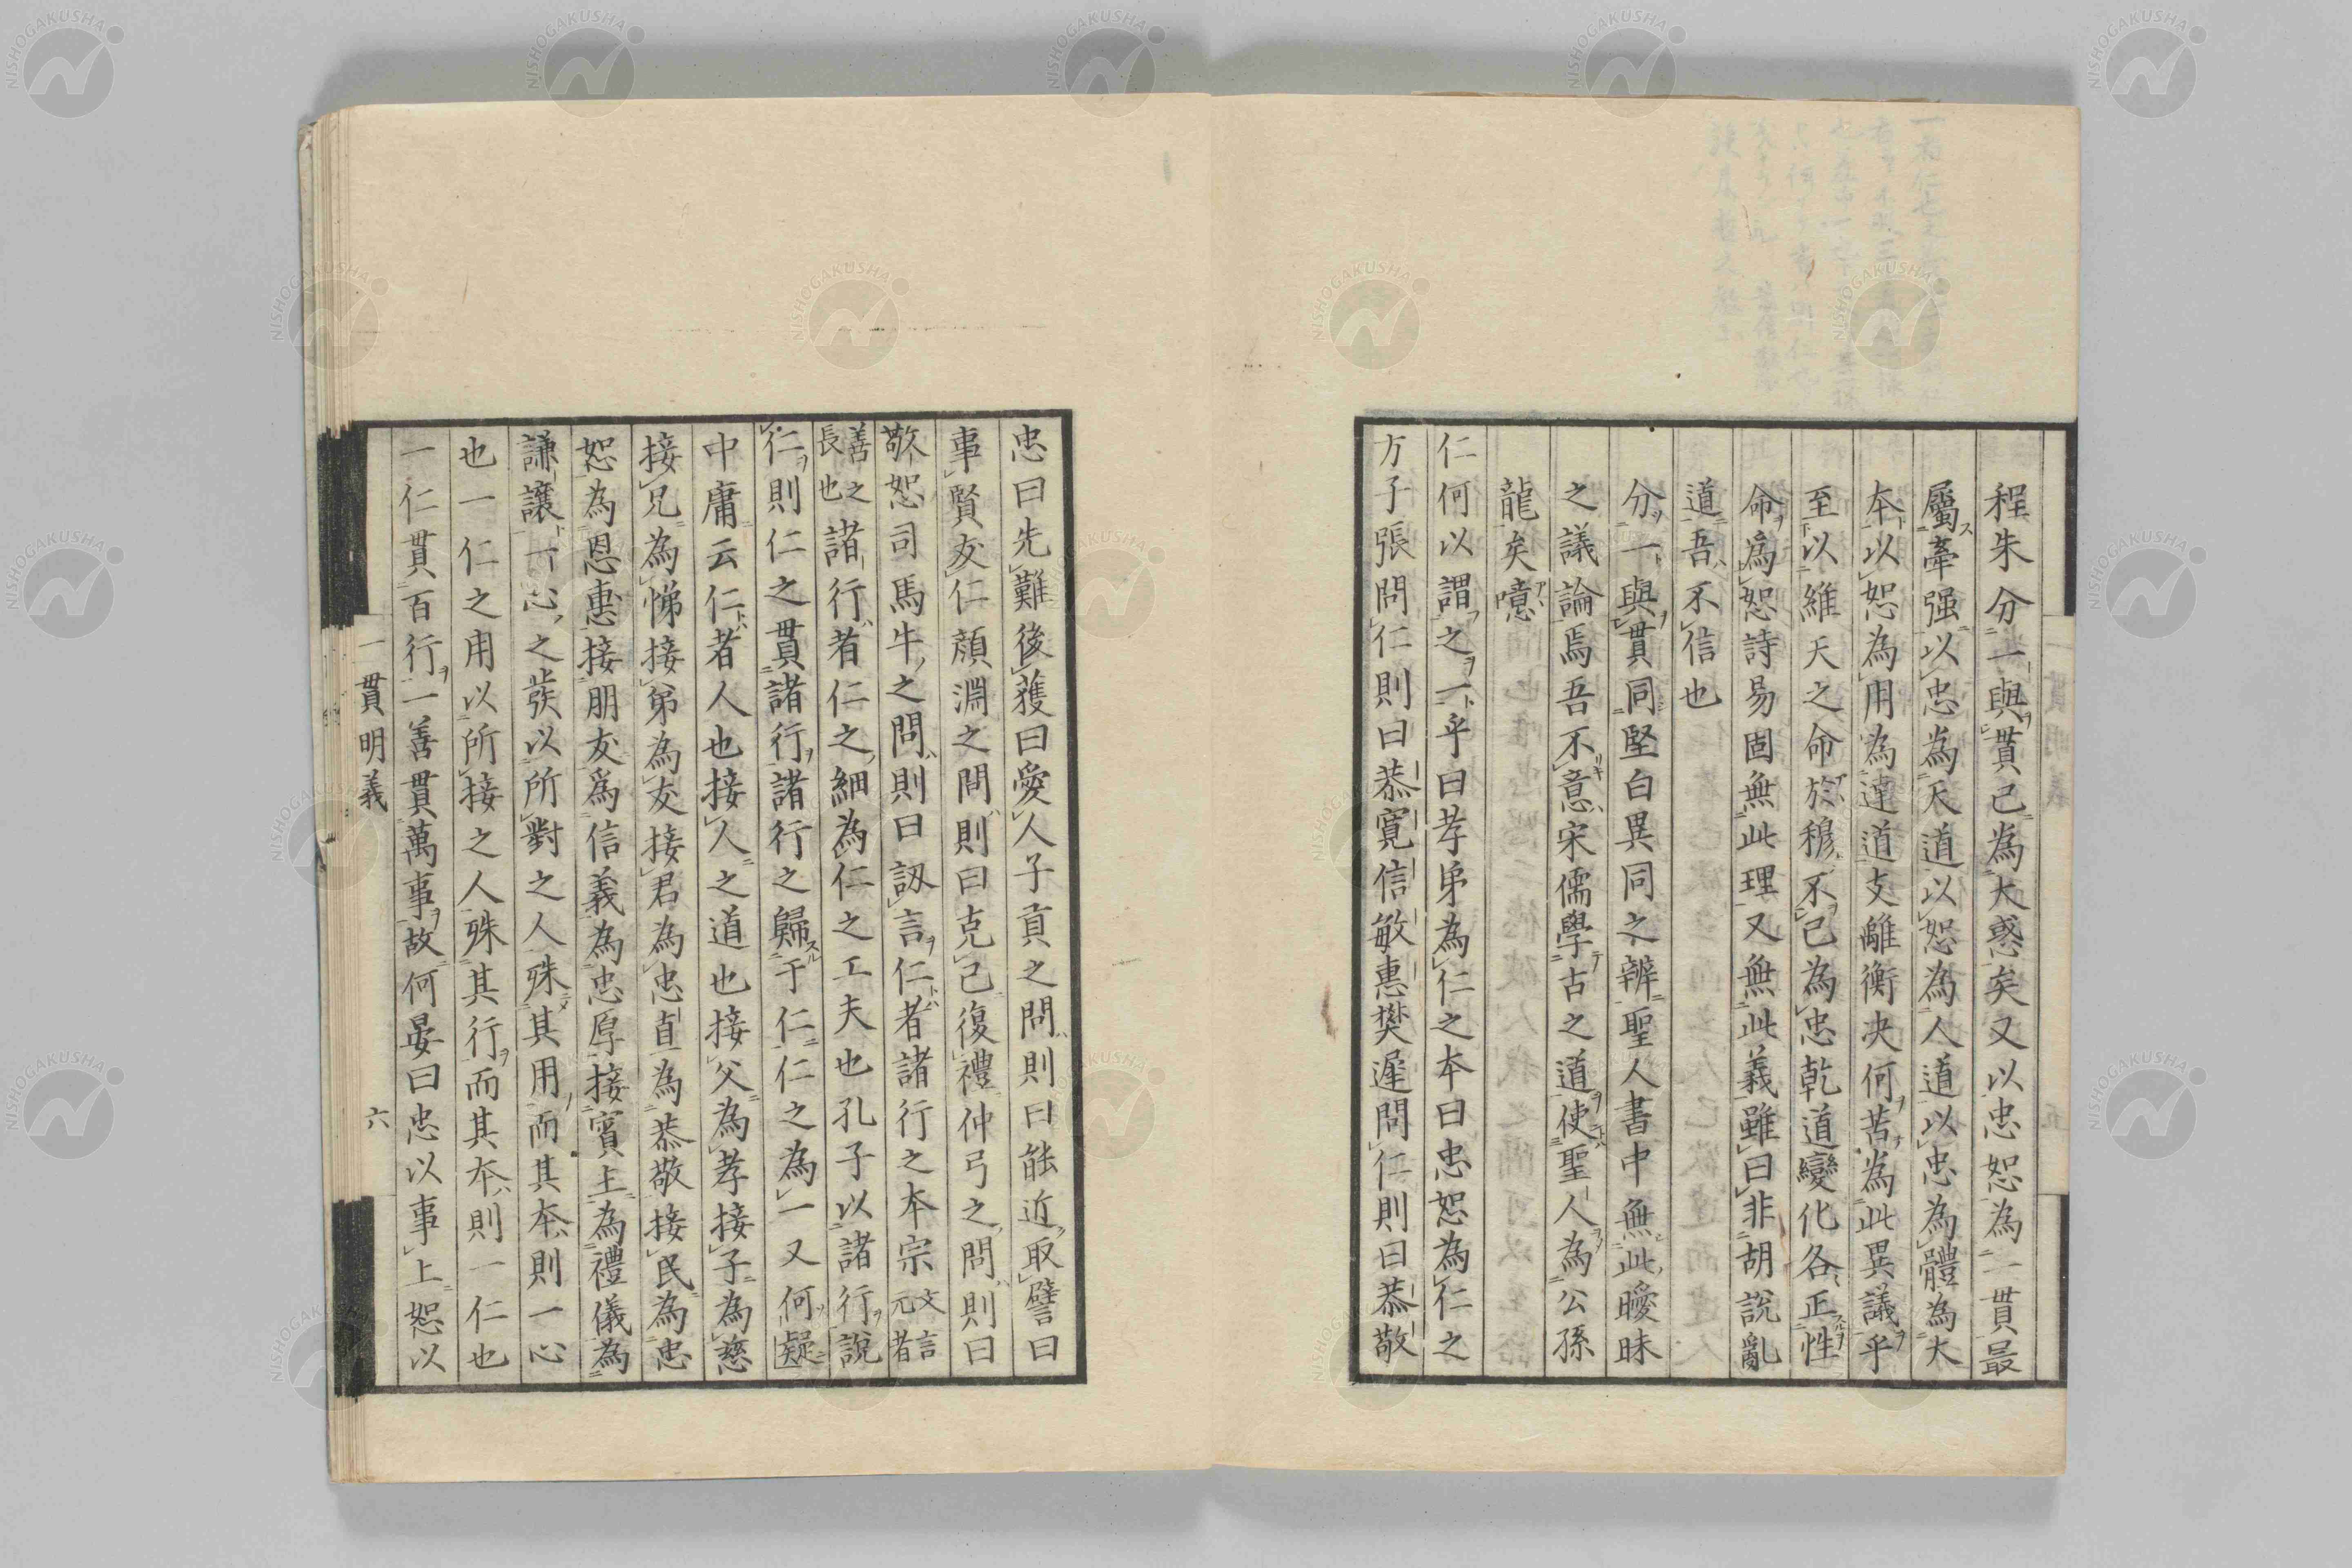 程朱分一與貫已為大惑矣又以忠恕為一貫最
屬牽强以忠為天道以恕為人道以忠為體為大
本以恕為用為達道支離衡决何苦為此異議乎
至以維天之命於穆不已為忠乾道變化各正性
命為恕詩易固無此理又無此義雖曰非胡說亂
道吾不信也
分一與貫同堅白異同之辨聖人書中無此曖昧
之議論焉吾不意宋儒學古之道使聖人為公孫
龍矣噫
仁何以謂之一乎曰孝弟為仁之本曰忠恕為仁之
方子張問仁則曰恭寬信敏惠樊遲問仁則曰恭敬
忠曰先難後獲曰愛人子貢之問則曰能近取譬曰
事賢友仁顏淵之問則曰克己復禮仲弓之問則曰
敬恕司馬牛之問則曰訒言仁者諸行之本宗文言元者
善之長也諸行者仁之細為仁之工夫也孔子以諸行說
仁則仁之貫諸行諸行之歸于仁仁之為一又何疑
中庸云仁者人也接人之道也接父為孝接子為慈
接兄為悌接弟為友接君為忠直為恭敬接民為忠
恕為恩惠接朋友為信義為忠厚接賓主為禮儀為
謙讓一心之發以所對之人殊其用而其本則一心
也一仁之用以所接之人殊其行而其本則一仁也
一仁貫百行一善貫萬事故何晏曰忠以事上恕以
一貫明義
六
NISHOGAKUSHA